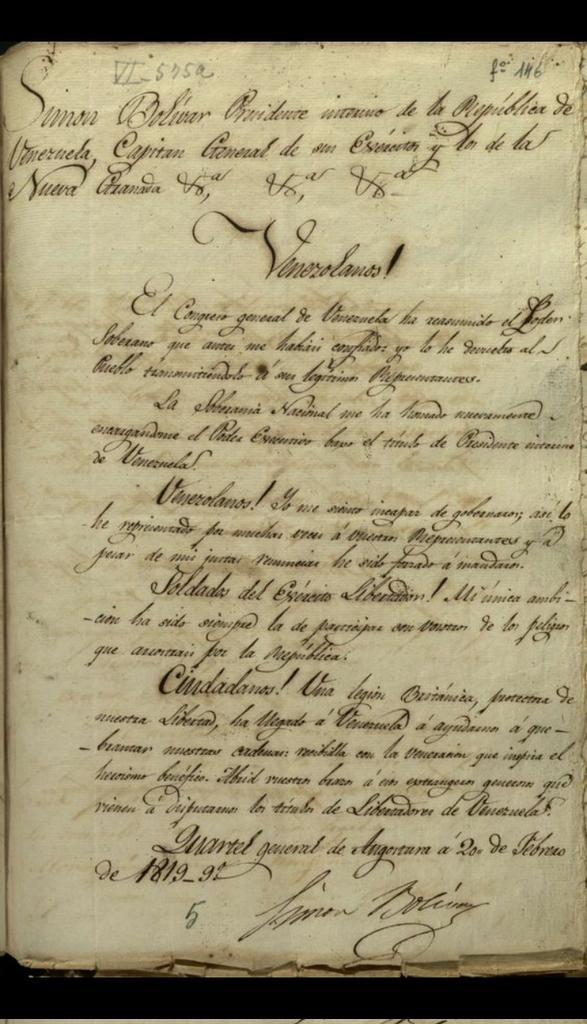 VI-575a
fº 146
Simon Bolívar Presidente interino de la República de
Venezuela, Capitan General de sus Exércitos y los de la
Nueva Granada &ª, &ª, &ª
Venezolanos!
El Congreso general de Venezuela ha reasumido el Poder
Soberano que antes me habiais confiado: yo lo he devuelto al
Pueblo transmitiendolo á sus legitimos Representantes.
La Soberania Nacional me ha honrado nuevamente
encargandome el Poder Executivo baxo el título de Presidente interino
de Venezuela.
Venezolanos! Yo me siento incapaz de gobernaros; así lo
he representado por muchas veces á vuestros Representantes y á
pesar de mis justas renuncias he sido forzado á mandaros.
Soldados del Exército Libertador! Mi única ambi-
-cion ha sido siempre la de participar con vosotros de los peligros
que arrostrais por la República.
Ciudadanos! Una legion Británica, protectora de
nuestra Libertad, ha llegado á Venezuela á ayudarnos á que-
-brantar nuestras cadenas: recibidla con la veneracion que inspira el
heroismo benéfico. Abrid vuestros brazos á esos extrangeros generosos que
vienen á disputarnos los títulos de Libertadores de Venezuela.
Quartel general de Angostura á 20 de Febrero
de 1819-9º
5
Simon Bolívar